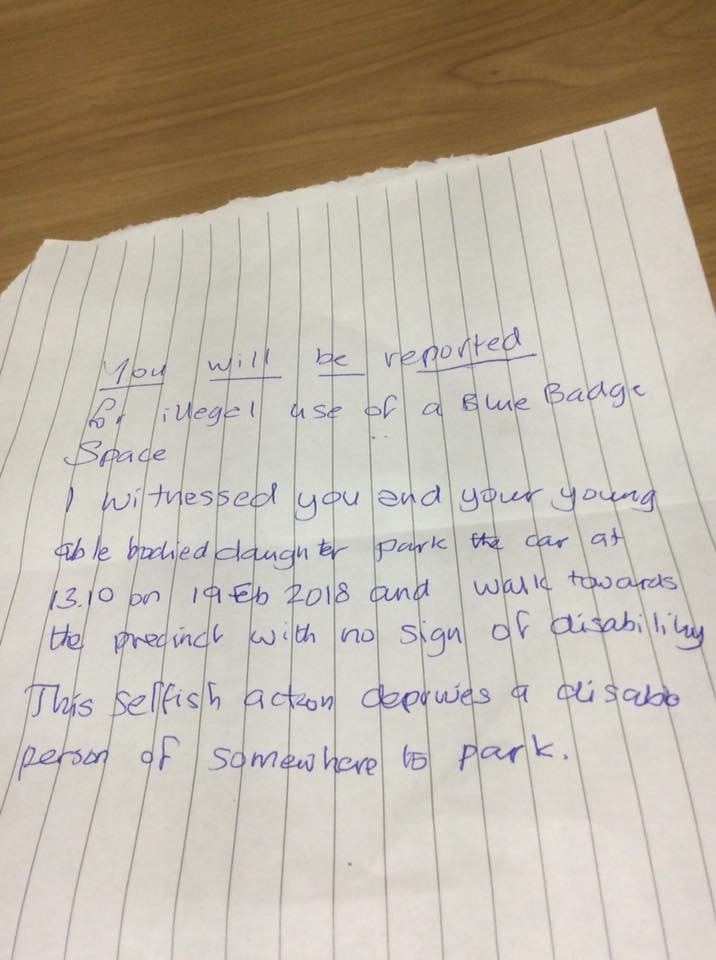 You will be reported
for illegel use of a Blue Badge
Space
I witnessed you and your young
able bodied daughter park the car at
13.10 on 19 Feb 2018 and walk towards
the precinct with no sign of disability
This selfish action deprives a disable
person of somewhere to park.